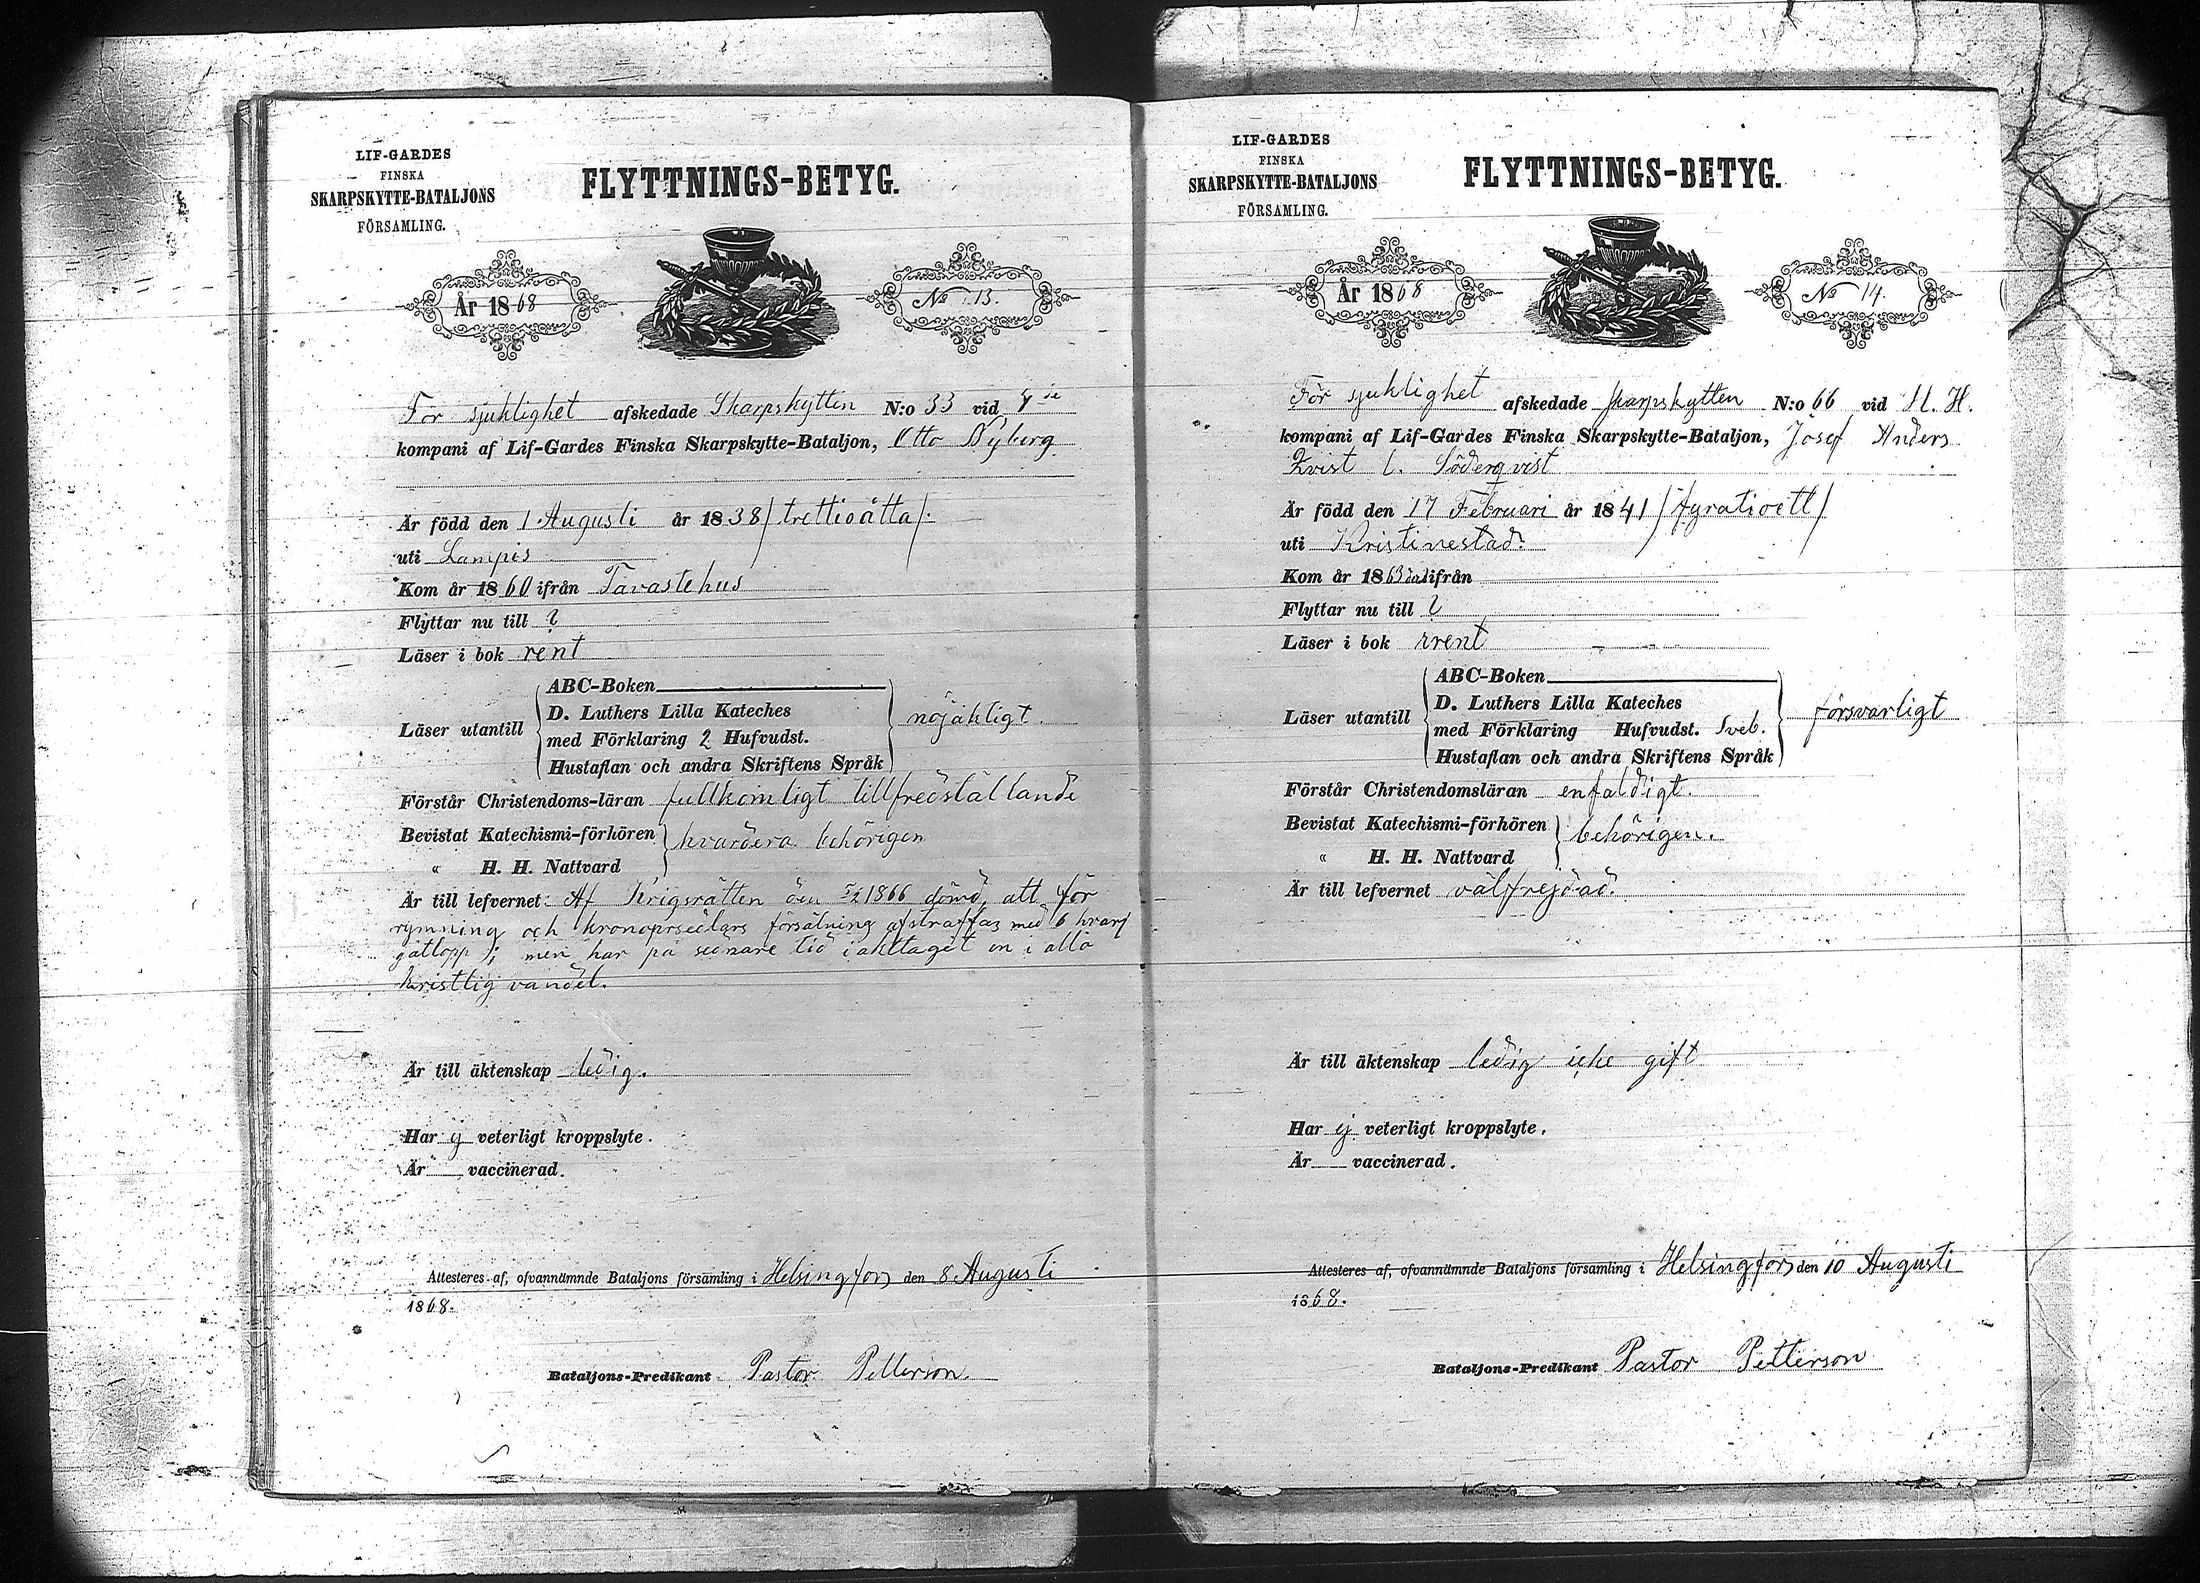 LIF-GARDES
FINSKA
SKARPSKYTTE-BATALJONS
FÖRSAMLING.
FLYTTNINGS-BETYG.
År 1868
No 13.
För sjuklighet afskedade Skarpskytten N:o 33 vid 4de
kompani af Lif-Gardes Finska Skarpskytte-Bataljon, Otto Nyberg
Är född den 1 Augusti år 1838 / trettioåtta /.
uti Lampis
Kom år 1860 ifrån Tavastehus
Flyttar nu till ?
Läser i bok rent
Läser utantill
ABC-Boken
D. Luthers Lilla Kateches
med Förklaring 2 Hufvudst.
Hustaflan och andra Skriftens Språk
nöjaktigt.
Förstår Christendoms-läran fullkomligt tillfredställande
Bevistat Katechismi-förhören
" H. H. Nattvard
hvardera behörigen
Är till lefvernet: Af Krigsrätten den 1866 dömd, att för
rymning och kronopersedlars försätning afstraffas med 6 hvarf
gatlopp; men har på sednare tid iakttagit en i allo
kristlig vandel.
Är till äktenskap ledig.
Har ej veterligt kroppslyte.
Är vaccinerad.
Attesteras af, ofvannämnde Bataljons församling i Helsingfors den 8 Augusti
1868.
Bataljons-Predikant Pastor Petterson.
LIF-GARDES
FINSKA
SKARPSKYTTE-BATALJONS
FÖRSAMLING.
FLYTTNINGS-BETYG.
År 1868
No 14.
För sjuklighet afskedade skarpskytten N:o 66 vid H. H.
kompani af Lif-Gardes Finska Skarpskytte-Bataljon, Josef Anders
Qvist l. Söderqvist
Är född den 17 Februari år 1841 / fyratioett /
uti Kristinestad.
Kom år 1863 ifrån
Flyttar nu till ?
Läser i bok rent
Läser utantill
ABC-Boken
D. Luthers Lilla Kateches
med Förklaring Hufvudst. Sveb.
Hustaflan och andra Skriftens Språk
försvarligt
Förstår Christendomsläran enfaldigt.
Bevistat Katechismi-förhören
" H. H. Nattvard
behörigen.
Är till lefvernet välfrejdad.
Är till äktenskap ledig icke gift
Har ej veterligt kroppslyte.
Är vaccinerad.
Attesteres af, ofvannämnde Bataljons församling i Helsingfors den 10 Augusti
1868.
Bataljons-Predikant Pastor Petterson